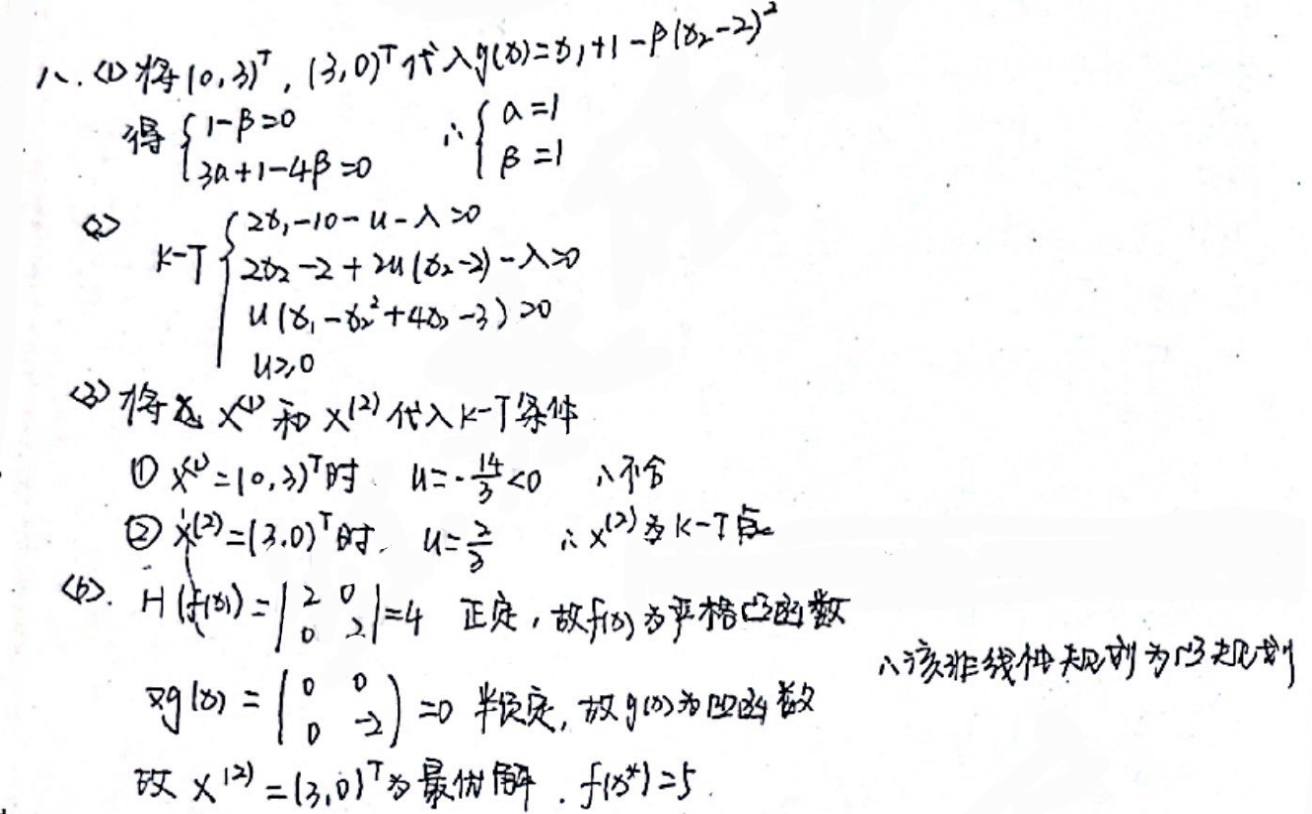 八.<1>将(0,3)ᵀ,(3,0)ᵀ代入g(x)=x₁+1-β(x₂-2)²
得{1-β=0 ∴{a=1
3a+1-4β=0 β=1
<2>
K-T{2x₁-10-u-λ=0
2x₂-2+2u(x₂-2)-λ=0
u(x₁-x₂²+4x₂-3)=0
u≥0
<3>将 X⁽¹⁾和X⁽²⁾代入K-T条件
① X⁽¹⁾=(0,3)ᵀ时 u=-14/3<0 ∴不合
② X⁽²⁾=(3.0)ᵀ时. u=2/3 ∴X⁽²⁾为K-T点
H(f(x))=|2 0
0 2|=4 正定,故f(x)为严格凸函数
∴该非线性规划为凸规划
g(x)=(0 0
0 -2)=0 半负定,故g(x)为凹函数
故X⁽²⁾=(3,0)ᵀ为最优解.f(x*)=5.